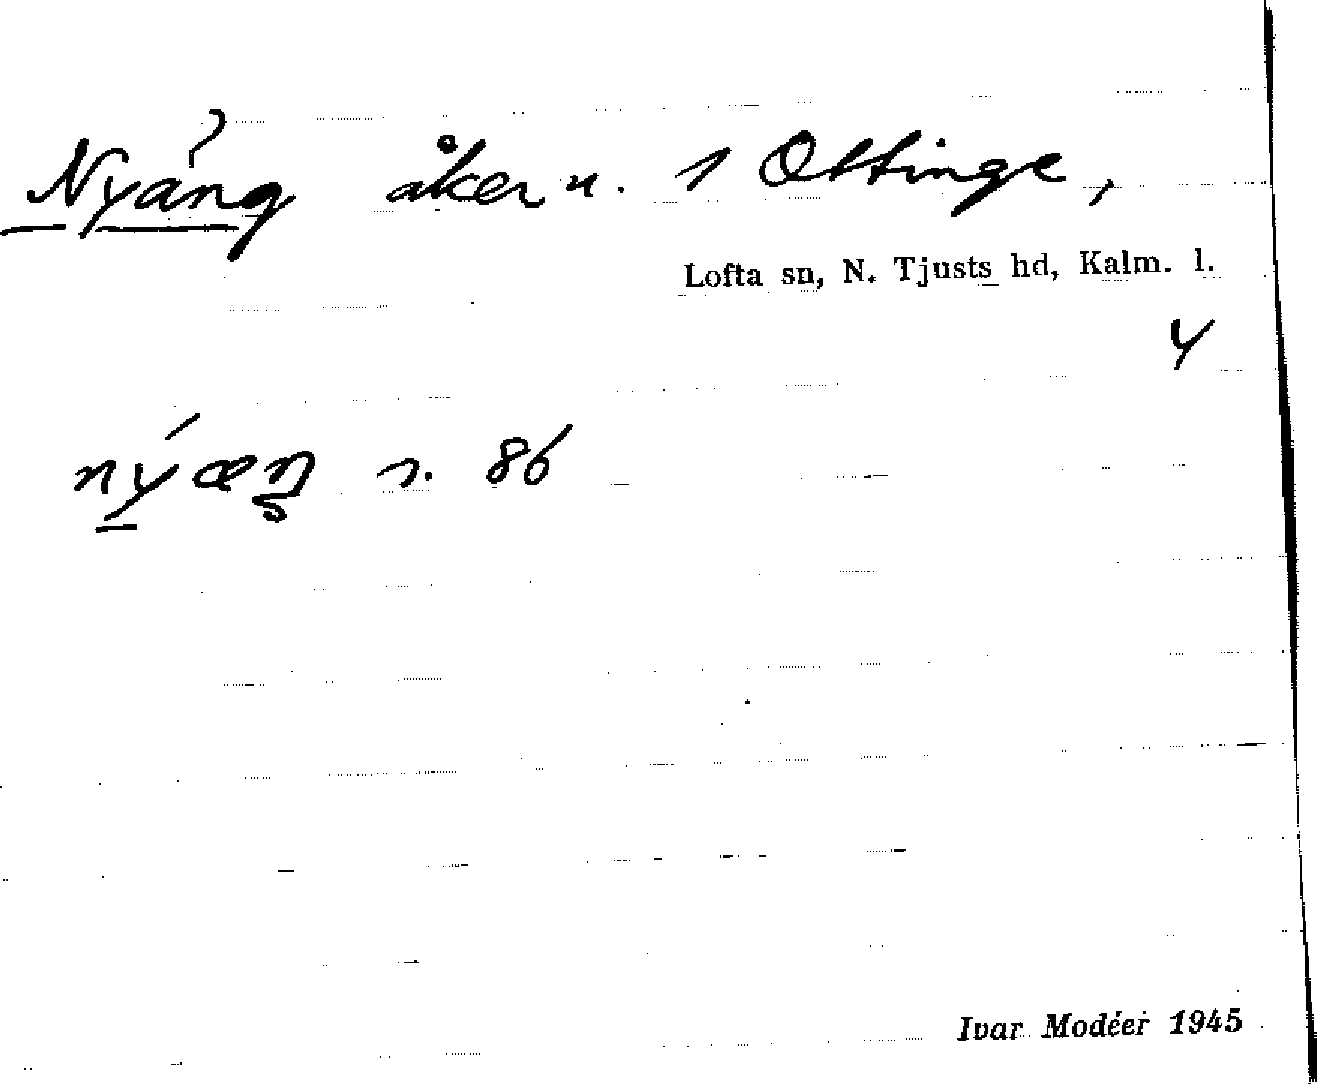 Nyäng åker n. 1 Ottinge,
Lofta sn, N. Tjusts hd, Kalm. l.
4
nýæŋ n. 86
Ivar Modéer 1945